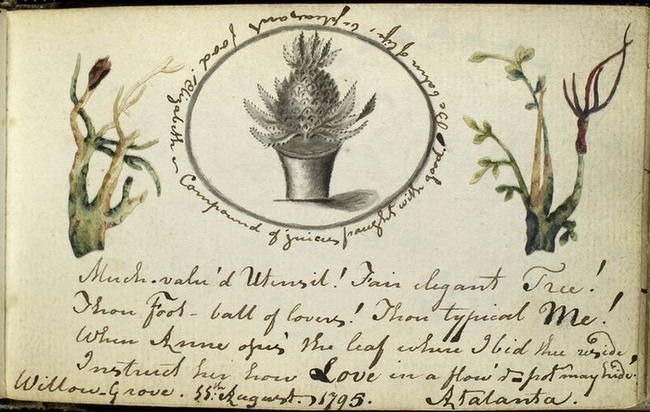 Compound of juices fraught with good The balm of life, & pleasant food. Elizabeth
Much-valu'd Utensil! Fair elegant Tree!
Thou Foot-ball of lovers! Thou typical Me!
When Anne ope's the leaf where I bid thee reside,
Instruct her how Love in a flow'r-pot may hide.
Willow-Grove. August. 1795. Atalanta.